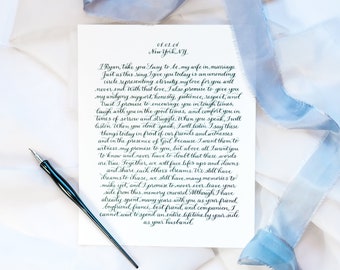 New York, NY
I Ryan, take you Lucy to be my wife in marriage.
Just as this ring I give you today is an unending
circle representing eternity, my love for you will
never end. With that love, I also promise to give you
my undying support, honesty, patience, respect, and
trust. I promise to encourage you in tough times,
laugh with you in good times, and comfort you in
times of sorrow and struggle. When you speak, I will
listen. When you don't speak, I will listen. I say these
things today in front of our friends and witnesses
and in the presence of God because I want them to
witness my promise to you, but above all, I want you
to know and never have to doubt that these words
are true. Together, we will face life's ups and downs
and share each other's dreams. We still have
dreams to achieve, we still have many memories to
make yet, and I promise to never ever leave your
side from this moment onward. Although I have
already spent many years with you as your friend,
boyfriend, fiancé, best friend, and companion, I
cannot wait to spend an entire lifetime by your side
as your husband.